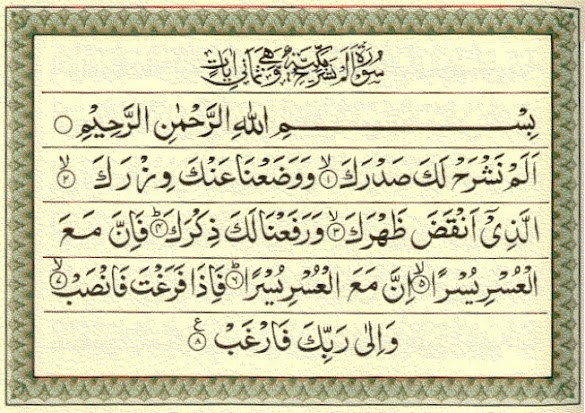 سُوْرَةُ اَلَمْ نَشْرَحْ مَكِّيَّةٌ وَّهِيَ ثَمَانِيْ اٰيَاتٍ
بِسْمِ اللّٰهِ الرَّحْمٰنِ الرَّحِيْمِ ○
اَلَمْ نَشْرَحْ لَكَ صَدْرَكَ ۙ﴿۱﴾ وَوَضَعْنَا عَنْكَ وِزْرَكَ ۙ﴿۲﴾
الَّذِيْٓ اَنْقَضَ ظَهْرَكَ ۙ﴿۳﴾ وَرَفَعْنَا لَكَ ذِكْرَكَ ؕ﴿۴﴾ فَاِنَّ مَعَ
الْعُسْرِ يُسْرًا ۙ﴿۵﴾ اِنَّ مَعَ الْعُسْرِ يُسْرًا ؕ﴿۶﴾ فَاِذَا فَرَغْتَ فَانْصَبْ ۙ﴿۷﴾
وَاِلٰى رَبِّكَ فَارْغَبْ ﴿۸﴾ ع